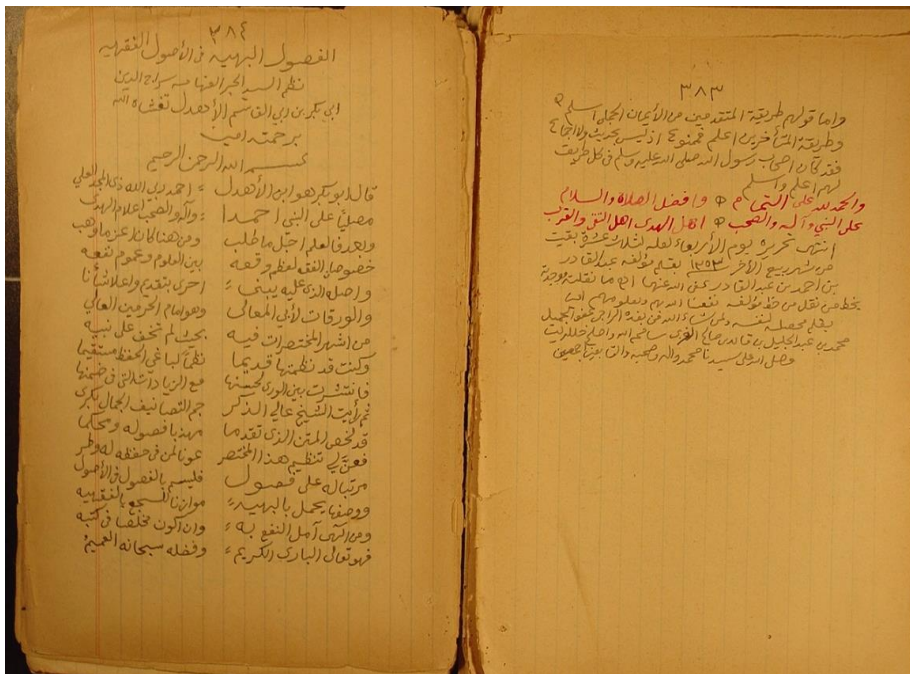 ٣٨٣
واما قولهم طريقة المتقدمين من الأيمان الجملى اسلم
وطريقة المتأخرين اعلم فممنوع اذ ليس بحديث ولا اجماع
فقد كان اصحاب رسول الله صلى الله عليه وسلم في كل طريقت
لهم اعلم واسلم
والحمد لله على التمام وافضل الصلاة والسلام
على النبي وآله والصحب اهل الهدى اهل التقى والقرب
انتهى تحريره يوم الأربعاء لعله لثلاث عشرة بقيت
من شهر ربيع الأخر ١٣٥٣ بقلم مؤلفه عبد القادر
بن احمد بن عبد القادر عفى الله عنهما اه ما نقلته
بخط من نقل من خط مؤلفه نفعنا الله بهم وبعلومهم امين
بقلم محصله لنفسه ولمن شاء الله من بعده الراجي عفو الجميل
محمد بن عبد الجليل بن سامحهم الله
وصلى الله على سيدنا محمد وآله وصحبه والتابعين اجمعين
٣٨٤
الفصول البهيه في الأصول الفقهيه
نظم السيد الحبر الفهامه سراج الدين
ابي بكر بن ابي القاسم الأهدل تغشاه الله
برحمته امين
بسم الله الرحمن الرحيم
قال ابو بكر هو ابن الأهدل = احمد ربي الله ذي المجد العلي
مصليا على النبي احمدا = وآله والصحب اعلام الهدى
وبعد فالعلم اجل ما طلب ومن هنا كان اعز ما وهب
خصوصا الفقه لعظم وقعه بين العلوم وعموم نفعه
واصله الذي عليه يبنى = احرى بتقديم واعلا شأنا
والورقات لأبي المعالي وهو امام الحرمين العالي
من اشهر المختصرات فيه بحيث لم تخف على نبيه
وكنت قد نظمتها قديما نظما لباغي الحفظ مستقيما
فانتشرت بين الورى لحسنها مع الزيادات التي في ضمنها
ثم رأيت الشيخ عالي الذكر جم التصانيف الجمال بكري
قد لخص المتن الذي تقدما مهذبا فصوله ومحكما
فعن لي تنظيم هذا المختصر عونا لمن في حفظه له وطر
مرتبا له على فصول فليسم بالفصول في الأصول
ووصفها يجمل بالبهيه = موازنا للسجع بالفقهيه
ومن الهي آمل النفع به = وان اكون مخلصا في كتبه
فهو تعالى البارئ الكريم = وفضله سبحانه العميم